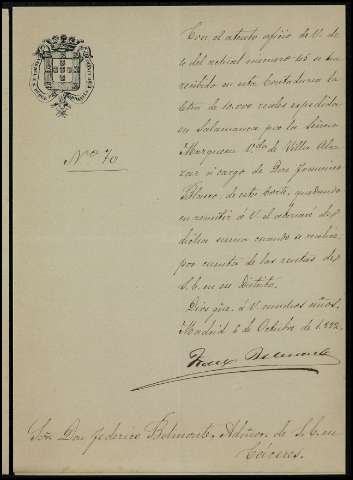 Con el atento oficio de V. de
4 del actual número 45 se ha
recibido en esta Contaduría la
letra de 10.000 reales expedida
en Salamanca por la Señora
Marquesa Vda de Villa Alca
zar á cargo de Don Francisco
Blanco, de esta Corte, quedando
en remitir á V. el abonaré de
dicha suma cuando se realice,
por cuenta de las rentas de
S. E. en su Distrito.
Dios gue. á V. muchos años.
Madrid 6 de Octubre de 1.882.
Nº 70
Señ. Don Federico Belmonte, Admor. de S. E. en
Cáceres.